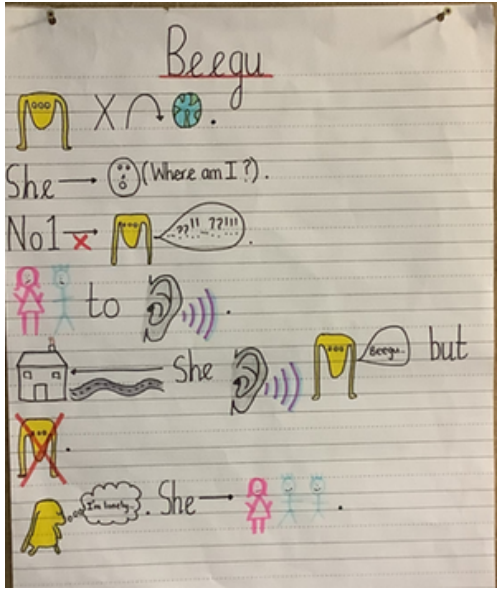 Beegu
X .
She (Where am I?).
No1 x ??!! ??!!! .
to .
She Beegu.. but
.
I'm lonely.. . She .